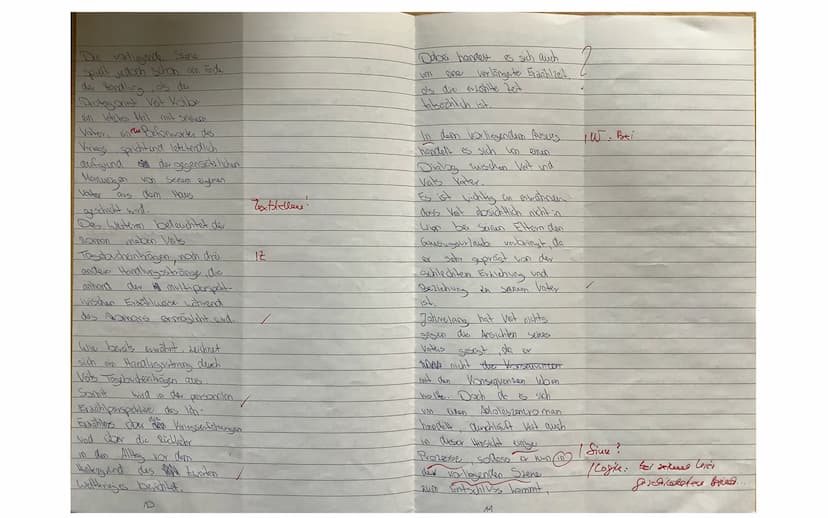 Die vorliegende Szene
spielt jedoch schon am Ende
der Handlung, als der
Veit Kolbe
ein letztes Mal mit seinem
Vater, ein Befürworter des
Kriegs spricht und letztendlich
aufgrund der gegensätzlichen
Meinungen von seinem eigenen
Vater aus dem Haus
geschickt wird.
Textstellen!
Des Weiteren beleuchtet der
Roman neben Veits
Tagebucheinträgen, noch drei
andere Handlungsstränge, die
anhand der multiperspekti-
vischen Erzählweise während
des Romans ermöglicht wird.
Wie bereits erwähnt, zeichnet
sich ein Handlungsstrang durch
Veits Tagebucheinträgen aus.
Somit wird in der personalen
Erzählperspektive des Ich-
Erzählers über Kriegserfahrungen
und über die Rückkehr
in den Alltag vor dem
Hintergrund des zweiten
Weltkrieges berichtet.
10
Dabei handelt es sich auch
um eine verlängerte Erzählzeit,
als die erzählte Zeit
tatsächlich ist.
?
In dem vorliegendem Auszug
W: Bei
handelt es sich um einen
Dialog zwischen Veit und
Veits Vater.
Es ist wichtig zu erwähnen,
dass Veit absichtlich nicht in
Wien bei seinen Eltern den
Genesungsurlaub verbringt, da
er sehr geprägt von der
schlechten Erziehung und
Beziehung zu seinem Vater
ist.
Jahrelang hat Veit nichts
gegen die Ansichten seines
Vaters gesagt, da er
nicht die Konsequenzen
mit den Konsequenzen leben
wollte. Doch da es sich
um einen Adoleszenzroman
handelt, durchläuft Veit auch
in dieser Hinsicht einige
Prozesse, sodass er nun in
Sinn?
der vorliegenden Szene
Logik:
zum Entschluss kommt,
11